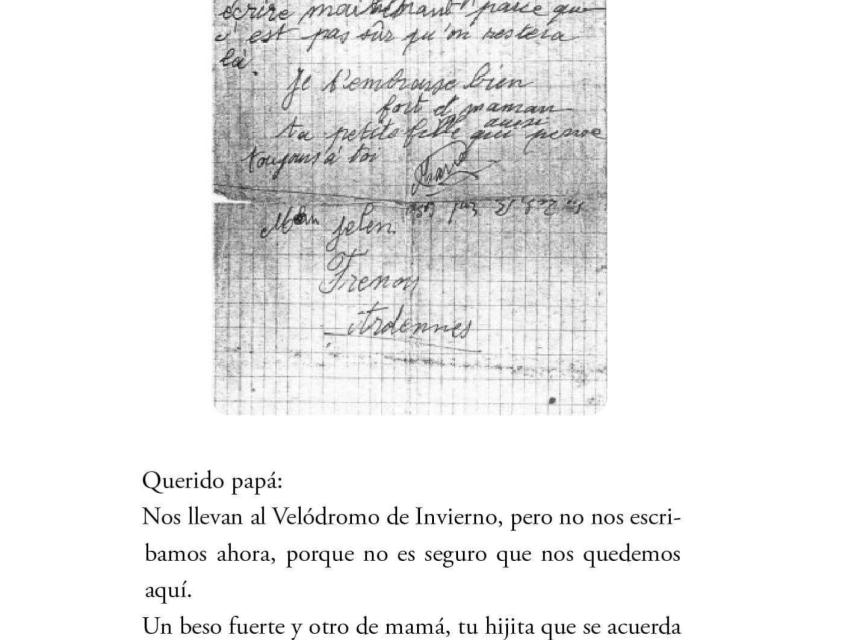 écrire maintenant parce que
c'est pas sûr qu'on restera
là.
Je t'embrasse bien
fort et maman
aussi
ta petite fille qui pense
toujours à toi
Mon Jelen
Frenoy
Ardennes
Querido papá:
Nos llevan al Velódromo de Invierno, pero no nos escri-
bamos ahora, porque no es seguro que nos quedemos
aquí.
Un beso fuerte y otro de mamá, tu hijita que se acuerda